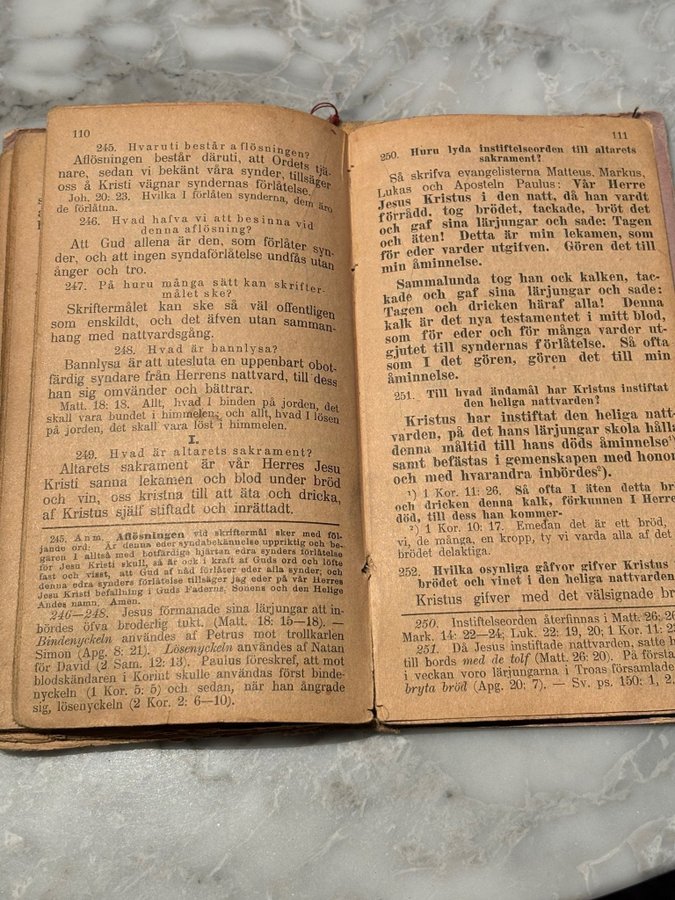 110
245. Hvaruti består aflösningen?
Aflösningen består däruti, att Ordets tjä-
nare, sedan vi bekänt våra synder, tillsäger
oss å Kristi vägnar syndernas förlåtelse.
Joh. 20: 23. Hvilka I förlåten synderna, dem äro
de förlåtna.
246. Hvad hafva vi att besinna vid
denna aflösning?
Att Gud allena är den, som förlåter syn-
der, och att ingen syndaförlåtelse undfås utan
ånger och tro.
247. På huru många sätt kan skrifter-
målet ske?
Skriftermålet kan ske så väl offentligen
som enskildt, och det äfven utan samman-
hang med nattvardsgång.
248. Hvad är bannlysa?
Bannlysa är att utesluta en uppenbart obot-
färdig syndare från Herrens nattvard, till dess
han sig omvänder och bättrar.
Matt. 18: 18. Allt, hvad I binden på jorden, det
skall vara bundet i himmelen; och allt, hvad I lösen
på jorden, det skall vara löst i himmelen.
I.
249. Hvad är altarets sakrament?
Altarets sakrament är vår Herres Jesu
Kristi sanna lekamen och blod under bröd
och vin, oss kristna till att äta och dricka,
af Kristus själf stiftadt och inrättadt.
245. Anm. Aflösningen vid skriftermål sker med föl-
jande ord: Är denna eder syndabekännelse uppriktig och be-
gären I alltså med botfärdiga hjärtan edra synders förlåtelse
för Jesu Kristi skull, så är ock i kraft af Guds ord och löfte
fast och visst, att Gud af nåd förlåter eder alla synder; och
denna edra synders förlåtelse tillsäger jag eder på vår Herres
Jesu Kristi befallning i Guds Faderns, Sonens och den Helige
Andes namn. Amen.
246—248. Jesus förmanade sina lärjungar att in-
bördes öfva broderlig tukt. (Matt. 18: 15—18). —
Bindenyckeln användes af Petrus mot trollkarlen
Simon (Apg. 8: 21). Lösenyckeln användes af Natan
för David (2 Sam. 12: 13). Paulus föreskref, att mot
blodskändaren i Korint skulle användas först binde-
nyckeln (1 Kor. 5: 5) och sedan, när han ångrade
sig, lösenyckeln (2 Kor. 2: 6—10).
111
250. Huru lyda instiftelseorden till altarets
sakrament?
Så skrifva evangelisterna Matteus, Markus,
Lukas och Aposteln Paulus: Vår Herre
Jesus Kristus i den natt, då han vardt
förrådd, tog brödet, tackade, bröt det
och gaf sina lärjungar och sade: Tagen
och äten! Detta är min lekamen, som
för eder varder utgifven. Gören det till
min åminnelse.
Sammalunda tog han ock kalken, tac-
kade och gaf sina lärjungar och sade:
Tagen och dricken häraf alla! Denna
kalk är det nya testamentet i mitt blod,
som för eder och för många varder ut-
gjutet till syndernas förlåtelse. Så ofta
som I det gören, gören det till min
åminnelse.
251. Till hvad ändamål har Kristus instiftat
den heliga nattvarden?
Kristus har instiftat den heliga natt-
varden, på det hans lärjungar skola hålla
denna måltid till hans döds åminnelse¹)
samt befästas i gemenskapen med honom
och med hvarandra inbördes²).
¹) 1 Kor. 11: 26. Så ofta I äten detta br
och dricken denna kalk, förkunnen I Herre
död, till dess han kommer-
²) 1 Kor. 10: 17. Emedan det är ett bröd,
vi, de många, en kropp, ty vi varda alla af det
brödet delaktiga.
252. Hvilka osynliga gåfvor gifver Kristus
brödet och vinet i den heliga nattvarden
Kristus gifver med det välsignade br
250. Instiftelseorden återfinnas i Matt. 26: 26
Mark. 14: 22—24; Luk. 22: 19, 20; 1 Kor. 11: 2
251. Då Jesus instiftade nattvarden, satte h
till bords med de tolf (Matt. 26: 20). På första
i veckan voro lärjungarna i Troas församlade
bryta bröd (Apg. 20: 7). — Sv. ps. 150: 1, 2.